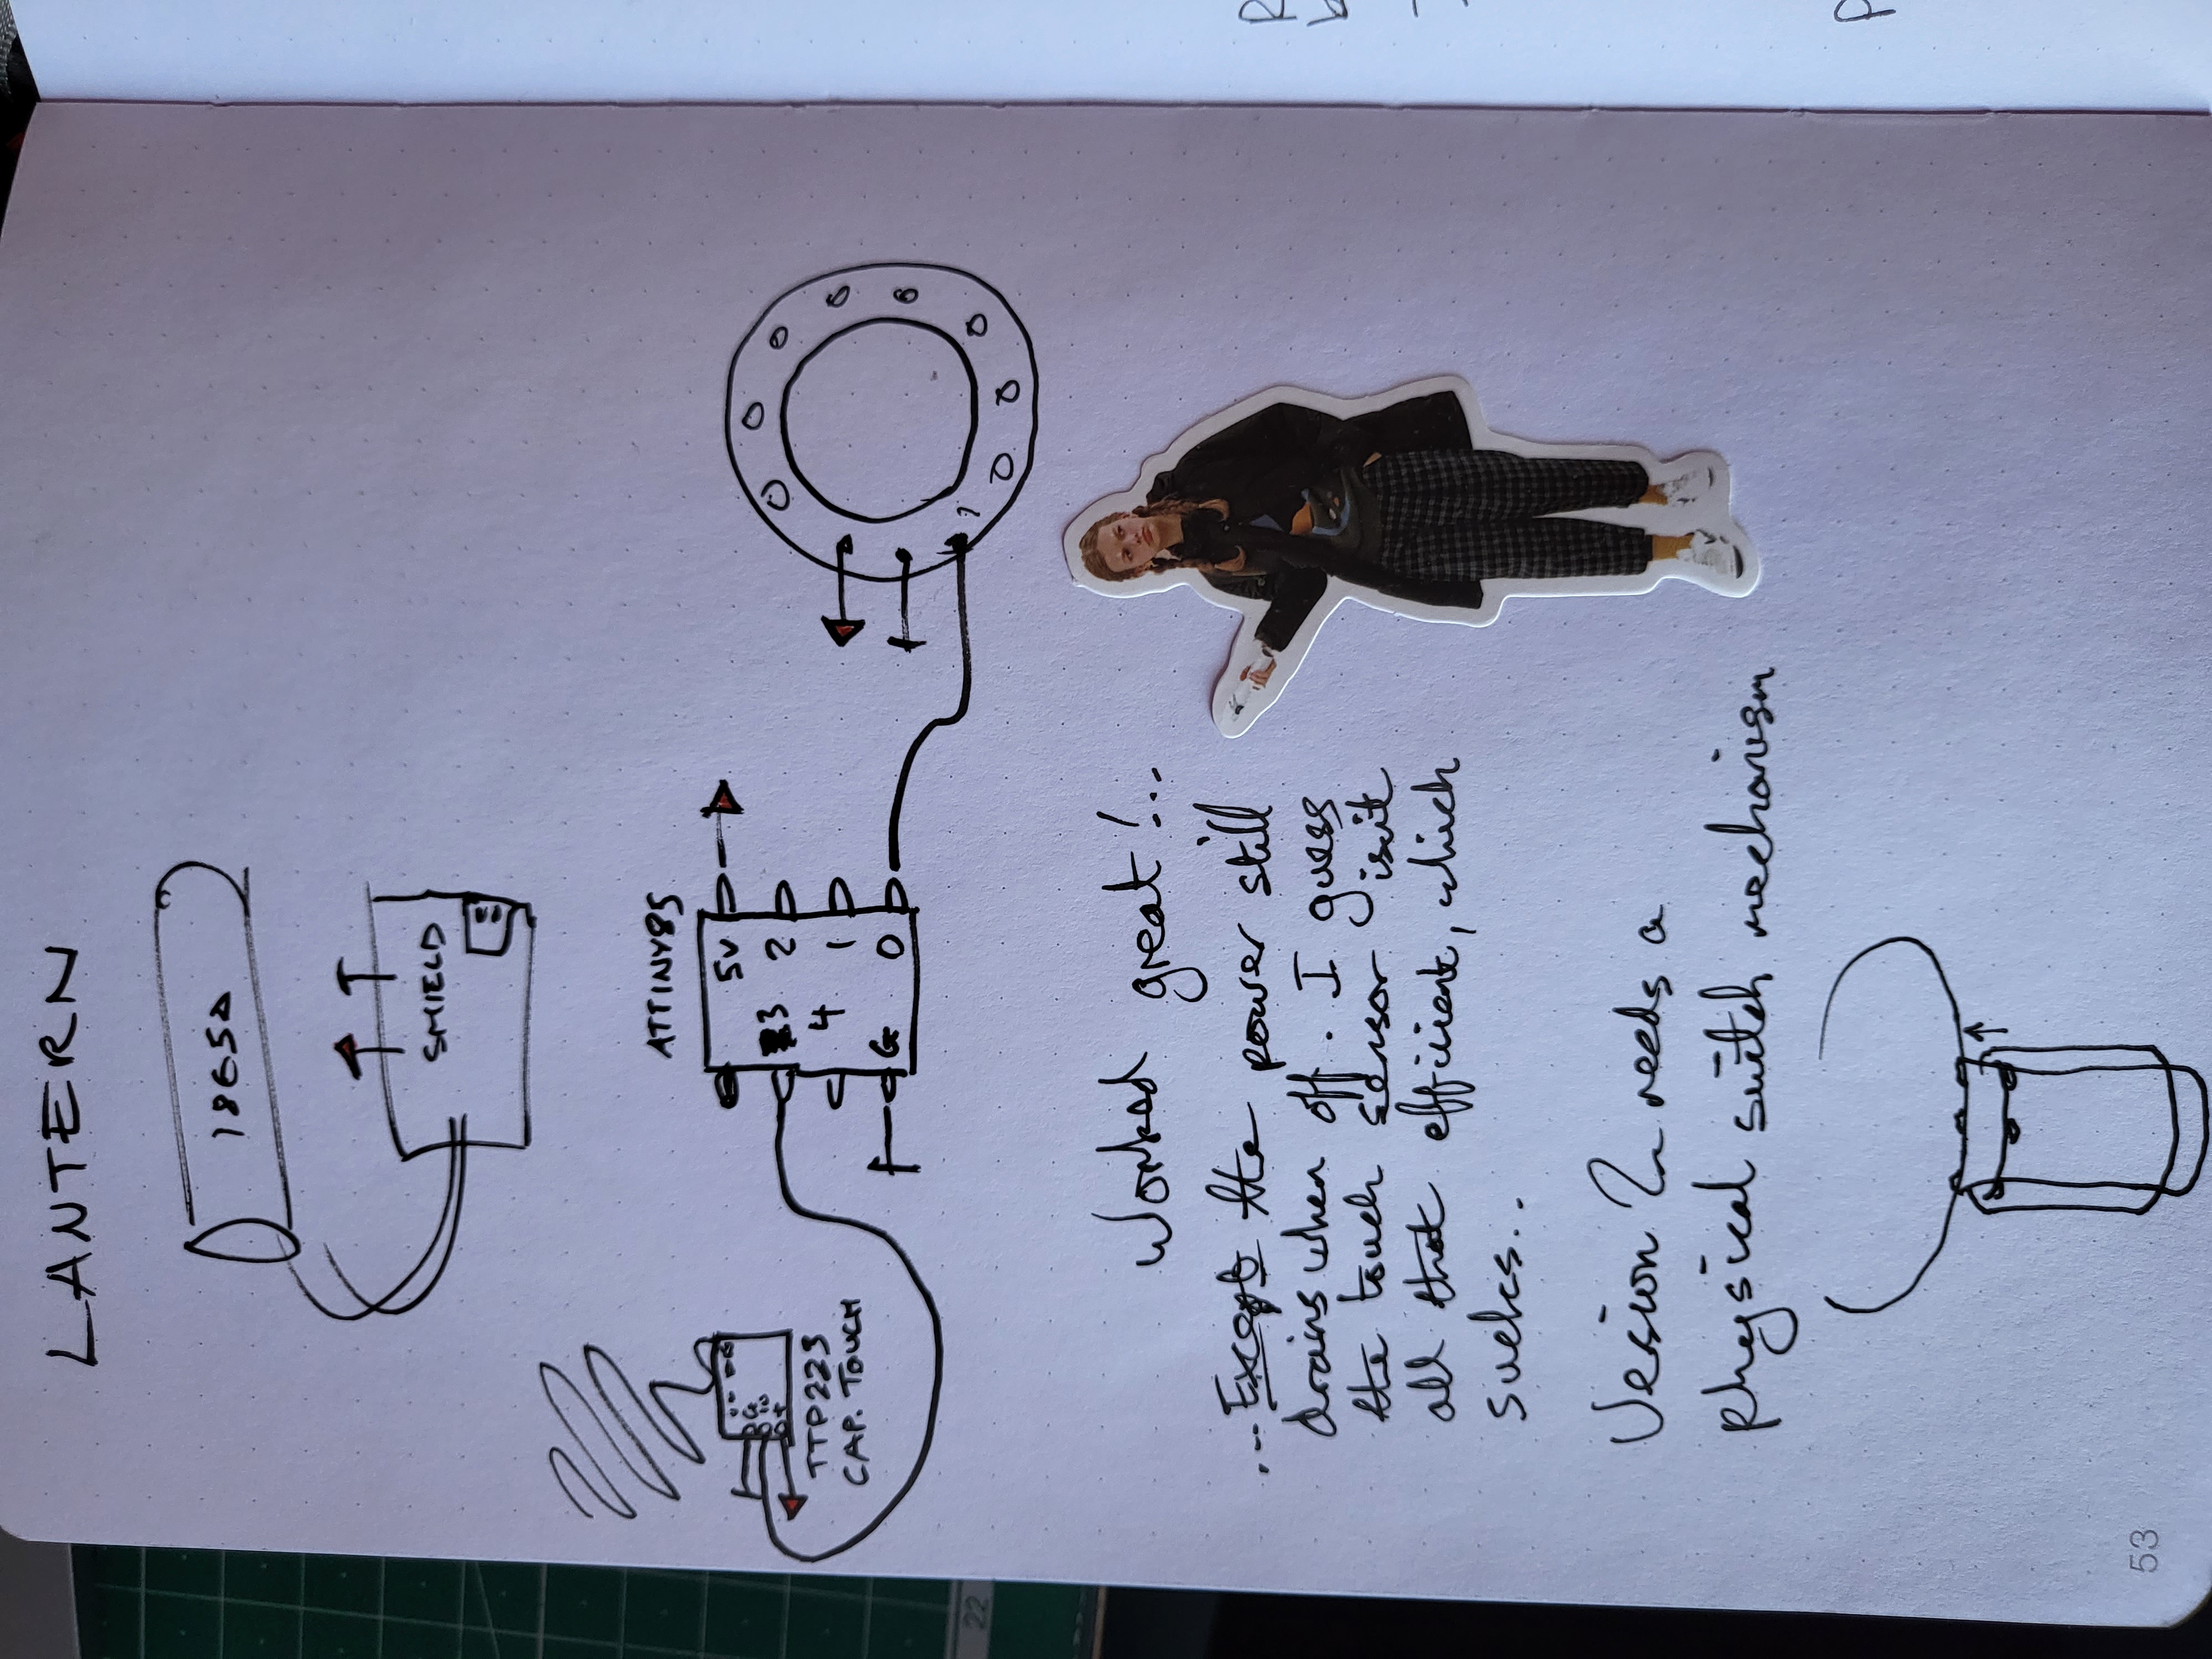 LANTERN
18650
SHIELD
ATTINY85
5V
3 2
4 1
G 0
TTP223
CAP. TOUCH
Worked great!...
...Except the power still
drains when off. I guess
the touch sensor isnt
all that efficient, which
sucks..
Version 2 needs a
physical switch mechanism
53
22